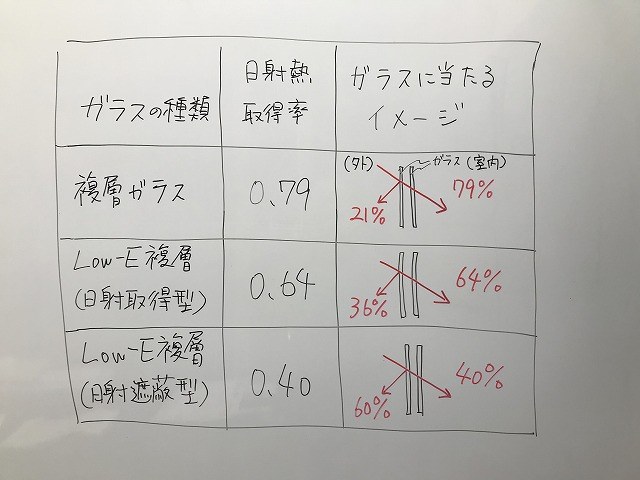 ガラスの種類
日射熱
取得率
ガラスに当たる
イメージ
複層ガラス
0.79
(外)
ガラス
(室内)
21%
79%
Low-E複層
(日射取得型)
0.64
36%
64%
Low-E複層
(日射遮蔽型)
0.40
60%
40%